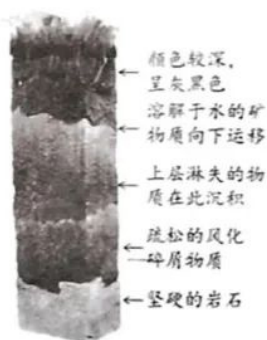 颜色较深，
呈灰黑色
溶解于水的矿
物质向下运移
上层淋失的物
质在此沉积
疏松的风化
碎屑物质
坚硬的岩石